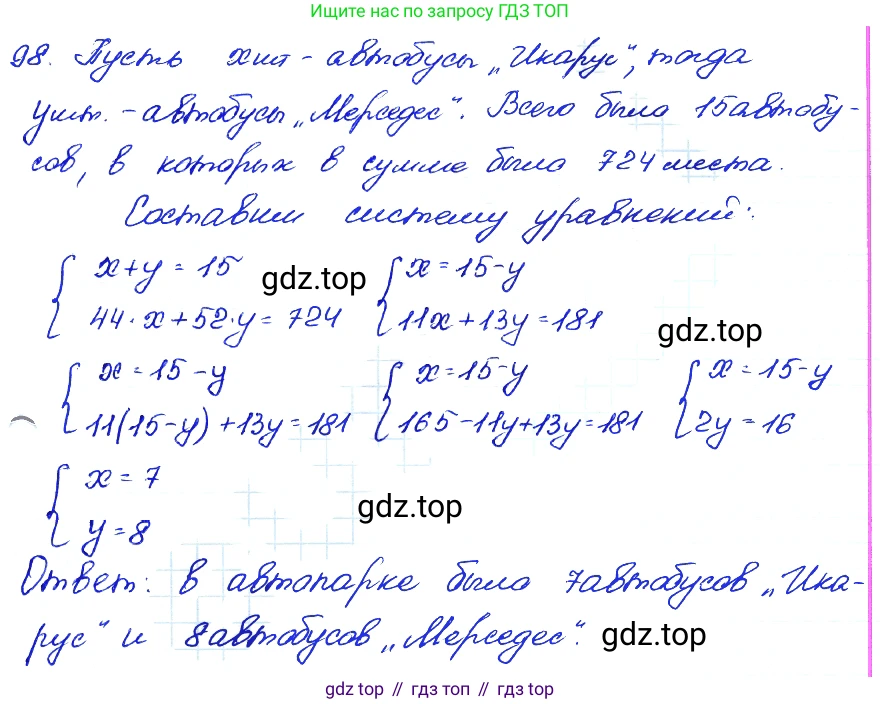 Ищите нас по запросу ГДЗ ТОП
98. Пусть x шт - автобусы „Икарус", тогда
y шт. - автобусы „Мерседес". Всего было 15 автобу-
сов, в которых в сумме было 724 места.
Составим систему уравнений:
{ x+y = 15 gdz.top { x = 15-y
44·x+52·y = 724 11x+13y = 181 gdz.top
{ x = 15-y { x = 15-y { x = 15-y
11(15-y)+13y = 181 165-11y+13y = 181 2y = 16
{ x = 7
y = 8 gdz.top
Ответ: в автопарке было 7 автобусов „Ика-
рус" и 8 автобусов „Мерседес". gdz.top
gdz top // гдз топ // gdz top